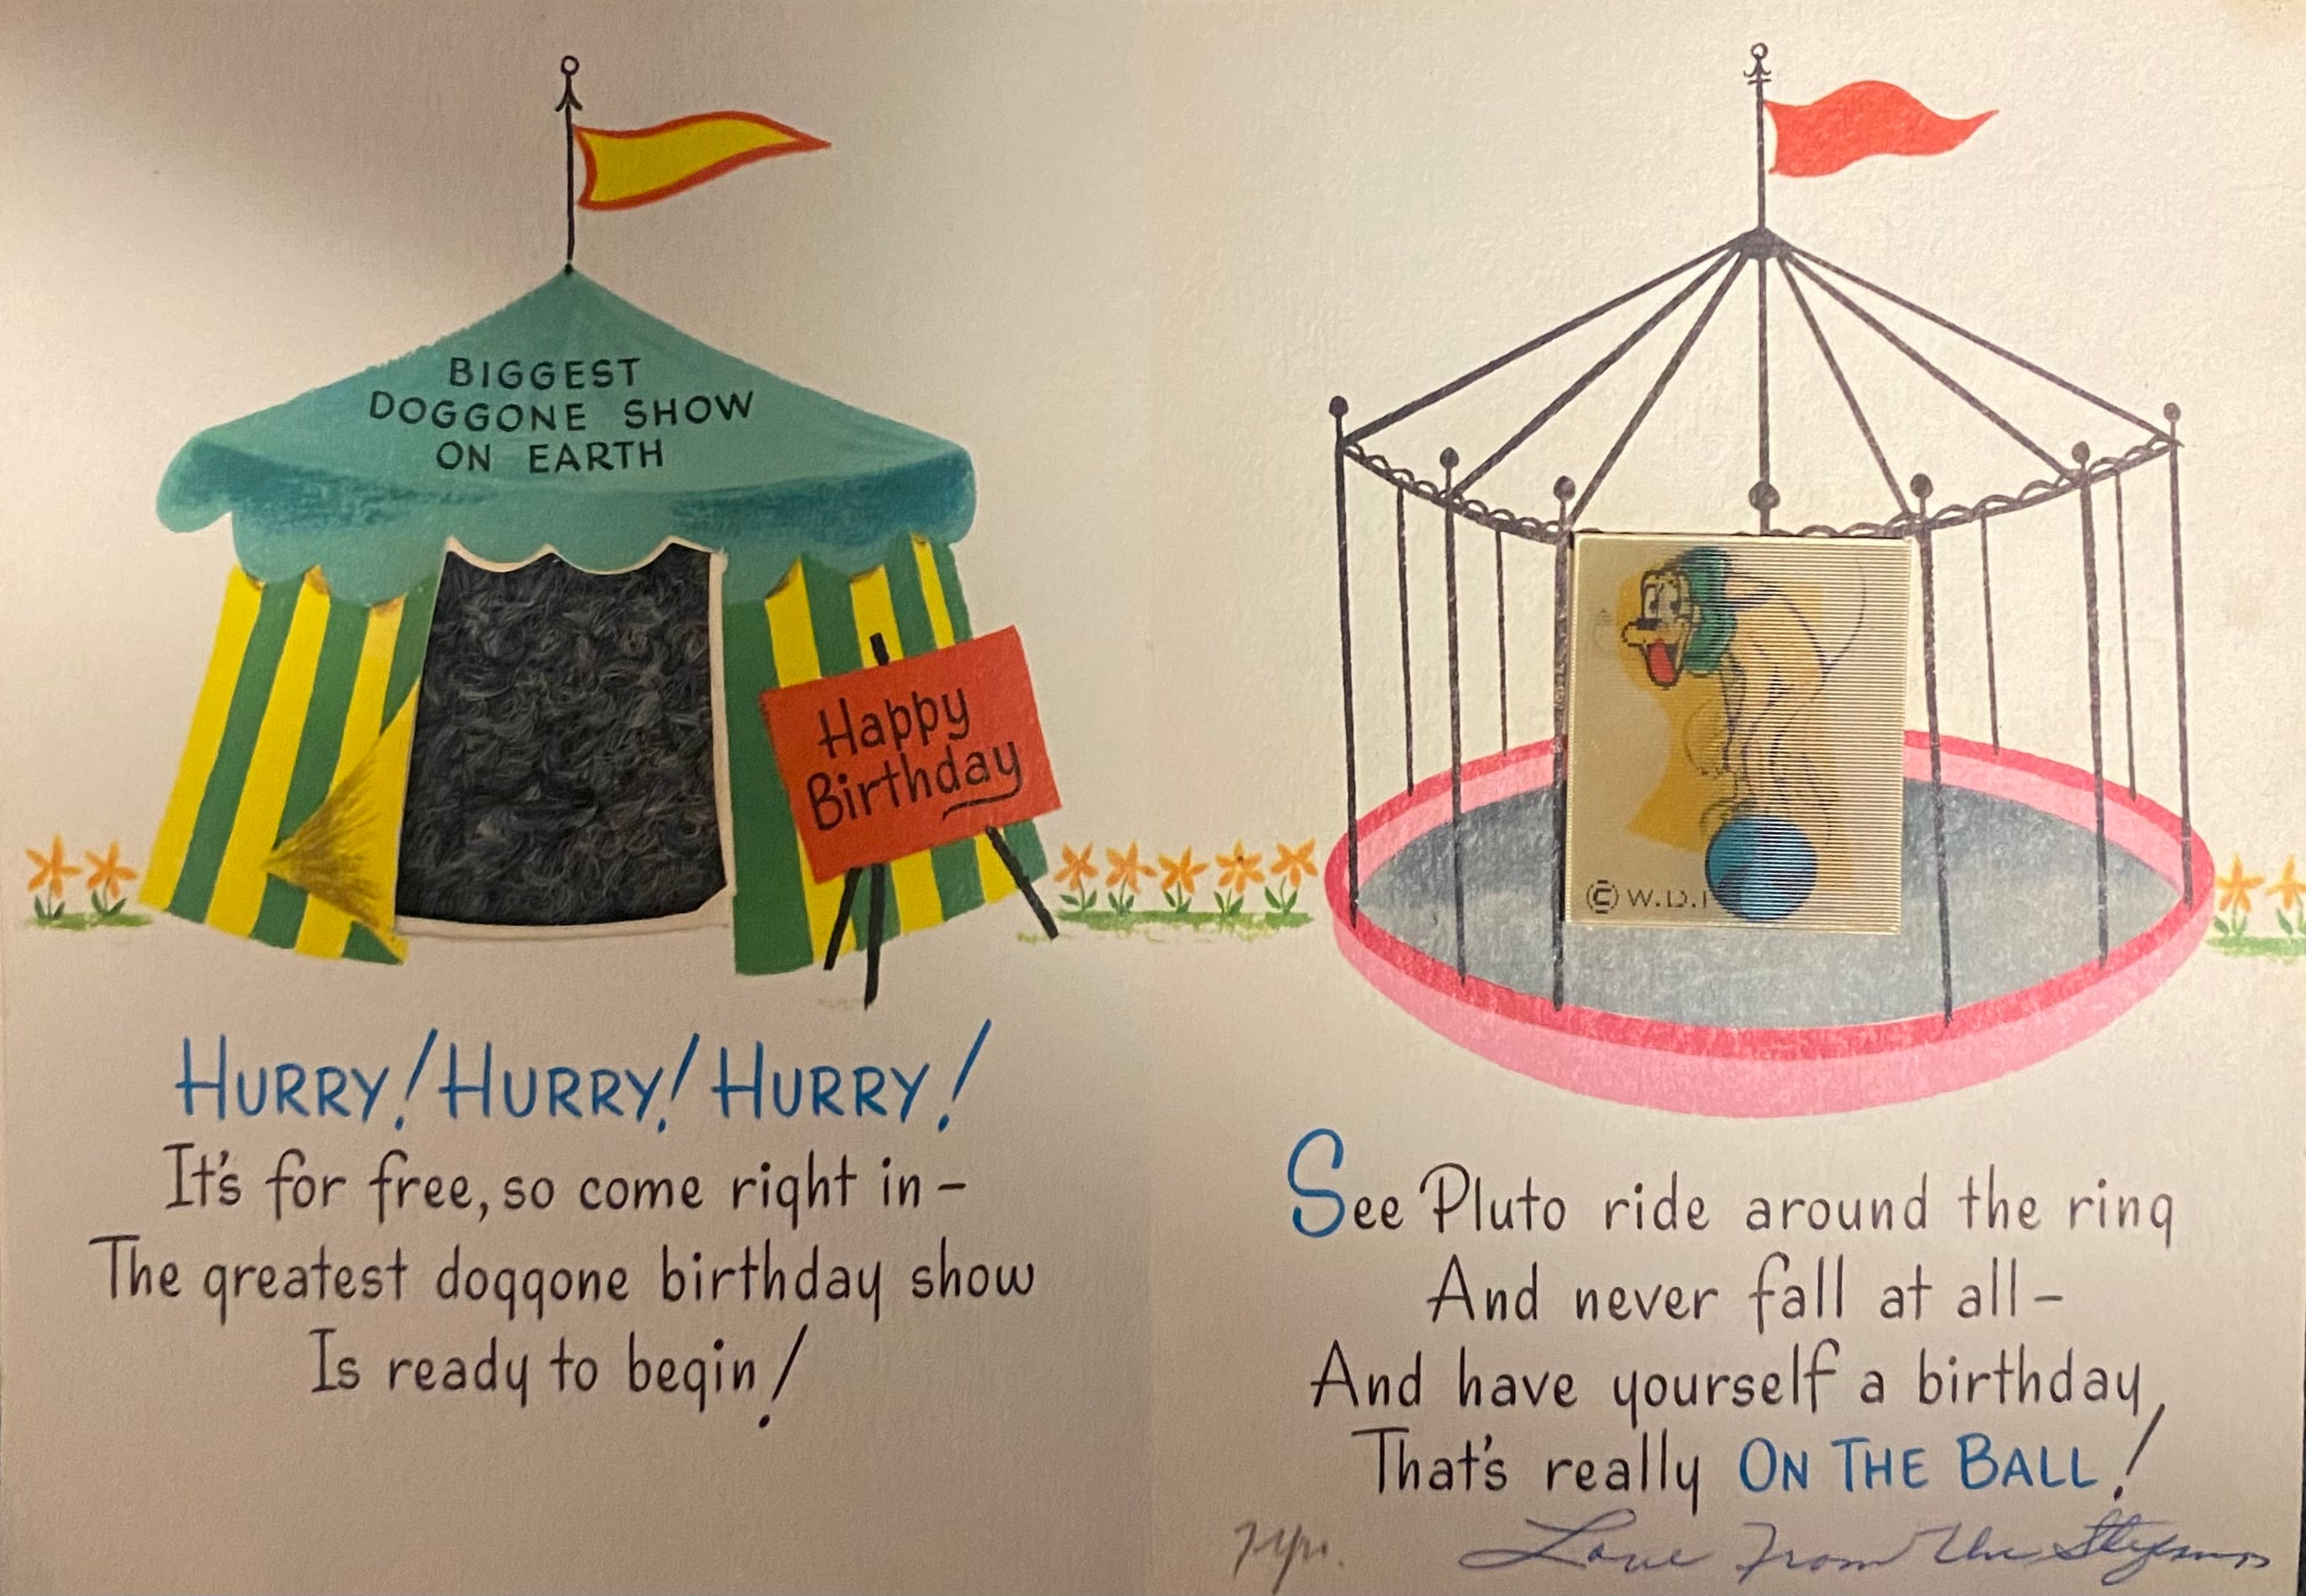 BIGGEST
DOGGONE SHOW
ON EARTH
Happy
Birthday
HURRY! HURRY! HURRY!
It's for free, so come right in –
The greatest doggone birthday show
Is ready to begin!
© W.D.
See Pluto ride around the ring
And never fall at all –
And have yourself a birthday
That's really ON THE BALL!
7 yr.
Love From The